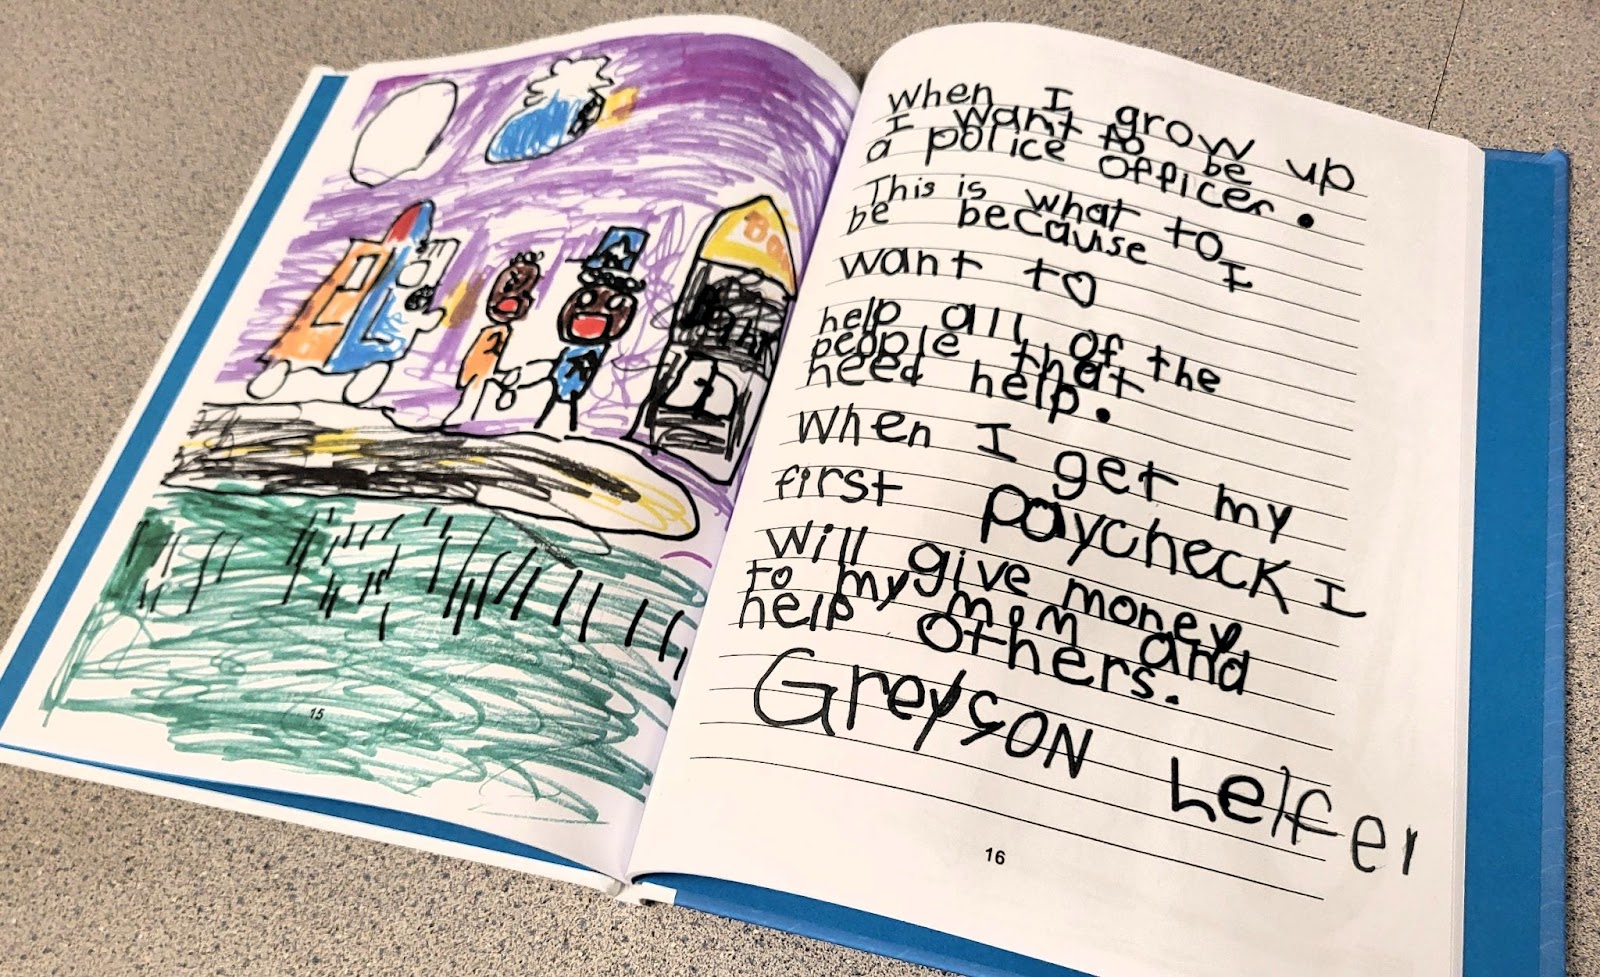 15
When I grow up
I want to be
a police officer.
This is what to
be because I
want to
help all of the
people that
need help.
When I get my
first paycheck I
will give money
to my mom and
help others.
Greyson Lelfer
16